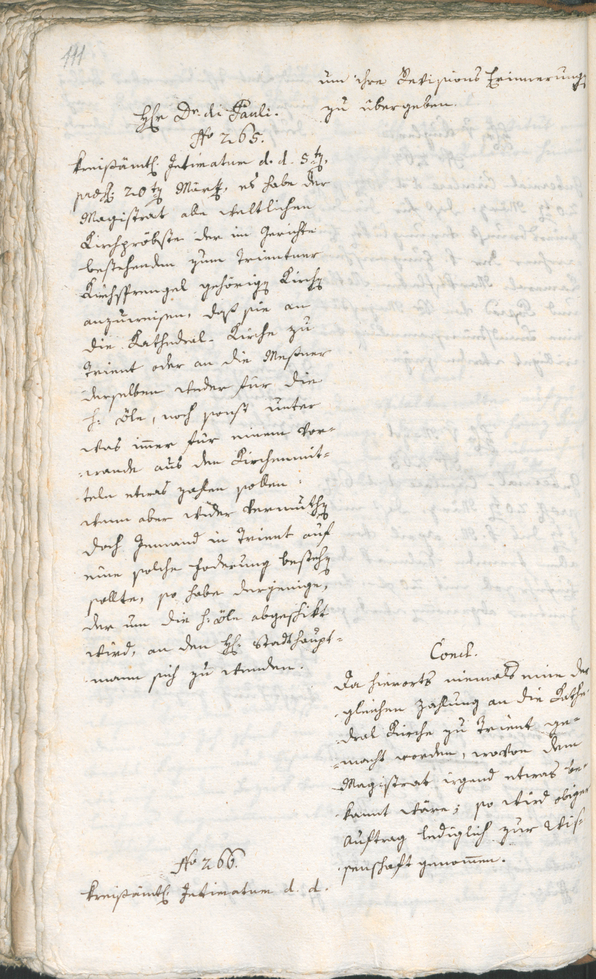 111
um ihre Revisions Erinnerungen
zu übergeben.
H. De di Pauli.
No 265.
Kreißämtl. Intimatum d. d. 5ten,
praes. 20ten März, es habe der
Magistrat alle weltlichen
Kirchpröbste der im Gerichte
bestehenden zum Trientner
Kirchsprengel gehörigen Kirchen
anzuweisen, daß sie an
die Kathedral-Kirche zu
Trient oder an die Meßner
derselben weder für die
h. Öle, noch sonst unter
was immer für einem Vor-
wande aus den Kirchenmit-
teln etwas zahlen sollen.
wenn aber wider Vermuthen
doch Jemand in Trient auf
eine solche Foderung bestehen
sollte, so habe derjenige,
der um die h. Öle abgeschikt
wird, an den H. Stadthaupt-
mann sich zu wenden.
Concl.
Da hierorts niemals eine der
gleichen Zahlung an die Kathe-
dral Kirche zu Trient ge-
macht worden, wovon dem
Magistrat irgend etwas be-
kannt wäre; so wird obiger
Auftrag lediglich zur Wis-
senschaft genommen.
No 266.
Kreißämtl. Intimatum d. d.